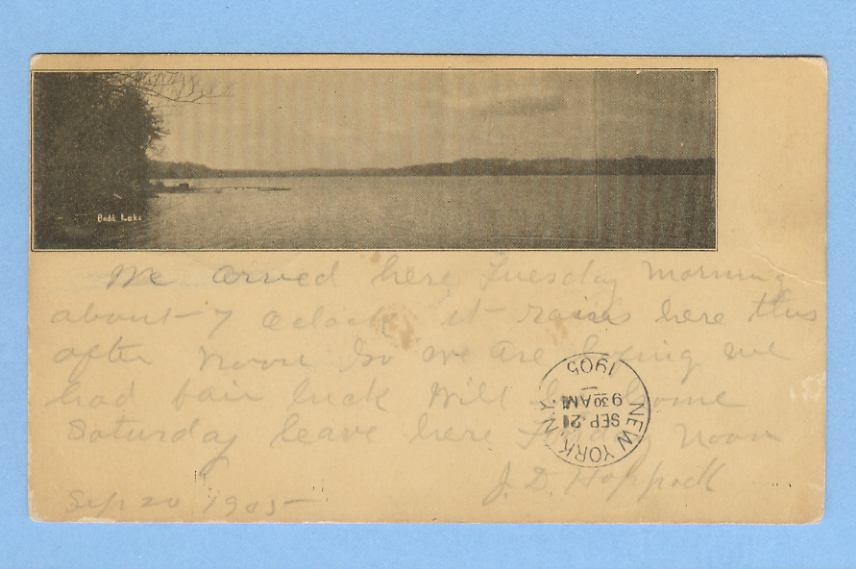 Budd Lake
We arived here Tuesday morning
about 7 oclock it rains here this
after noon so we are loafing we
had fair luck Will be home
Saturday leave here Friday noon
J. D. Hoppock
Sep 20 1905
NEW YORK, N.Y.
SEP. 21
9 30 AM
1905